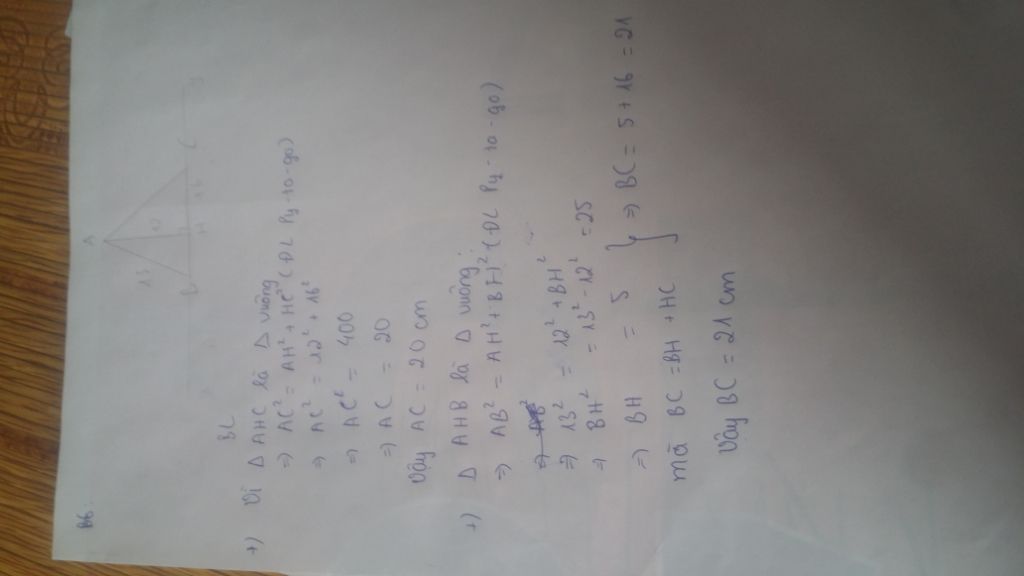 B6.
A
13
12
B H 16 C
BC
+) Vì Δ AHC là Δ vuông
=> AC² = AH² + HC² (ĐL Py-ta-go)
=> AC² = 12² + 16²
=> AC² = 400
=> AC = 20
Vậy AC = 20 cm
+) Δ AHB là Δ vuông
=> AB² = AH² + BH² (ĐL Py-ta-go)
=> AB²
=> 13² = 12² + BH²
=> BH² = 13² - 12² = 25
=> BH = 5
mà BC = BH + HC } => BC = 5 + 16 = 21
Vậy BC = 21 cm